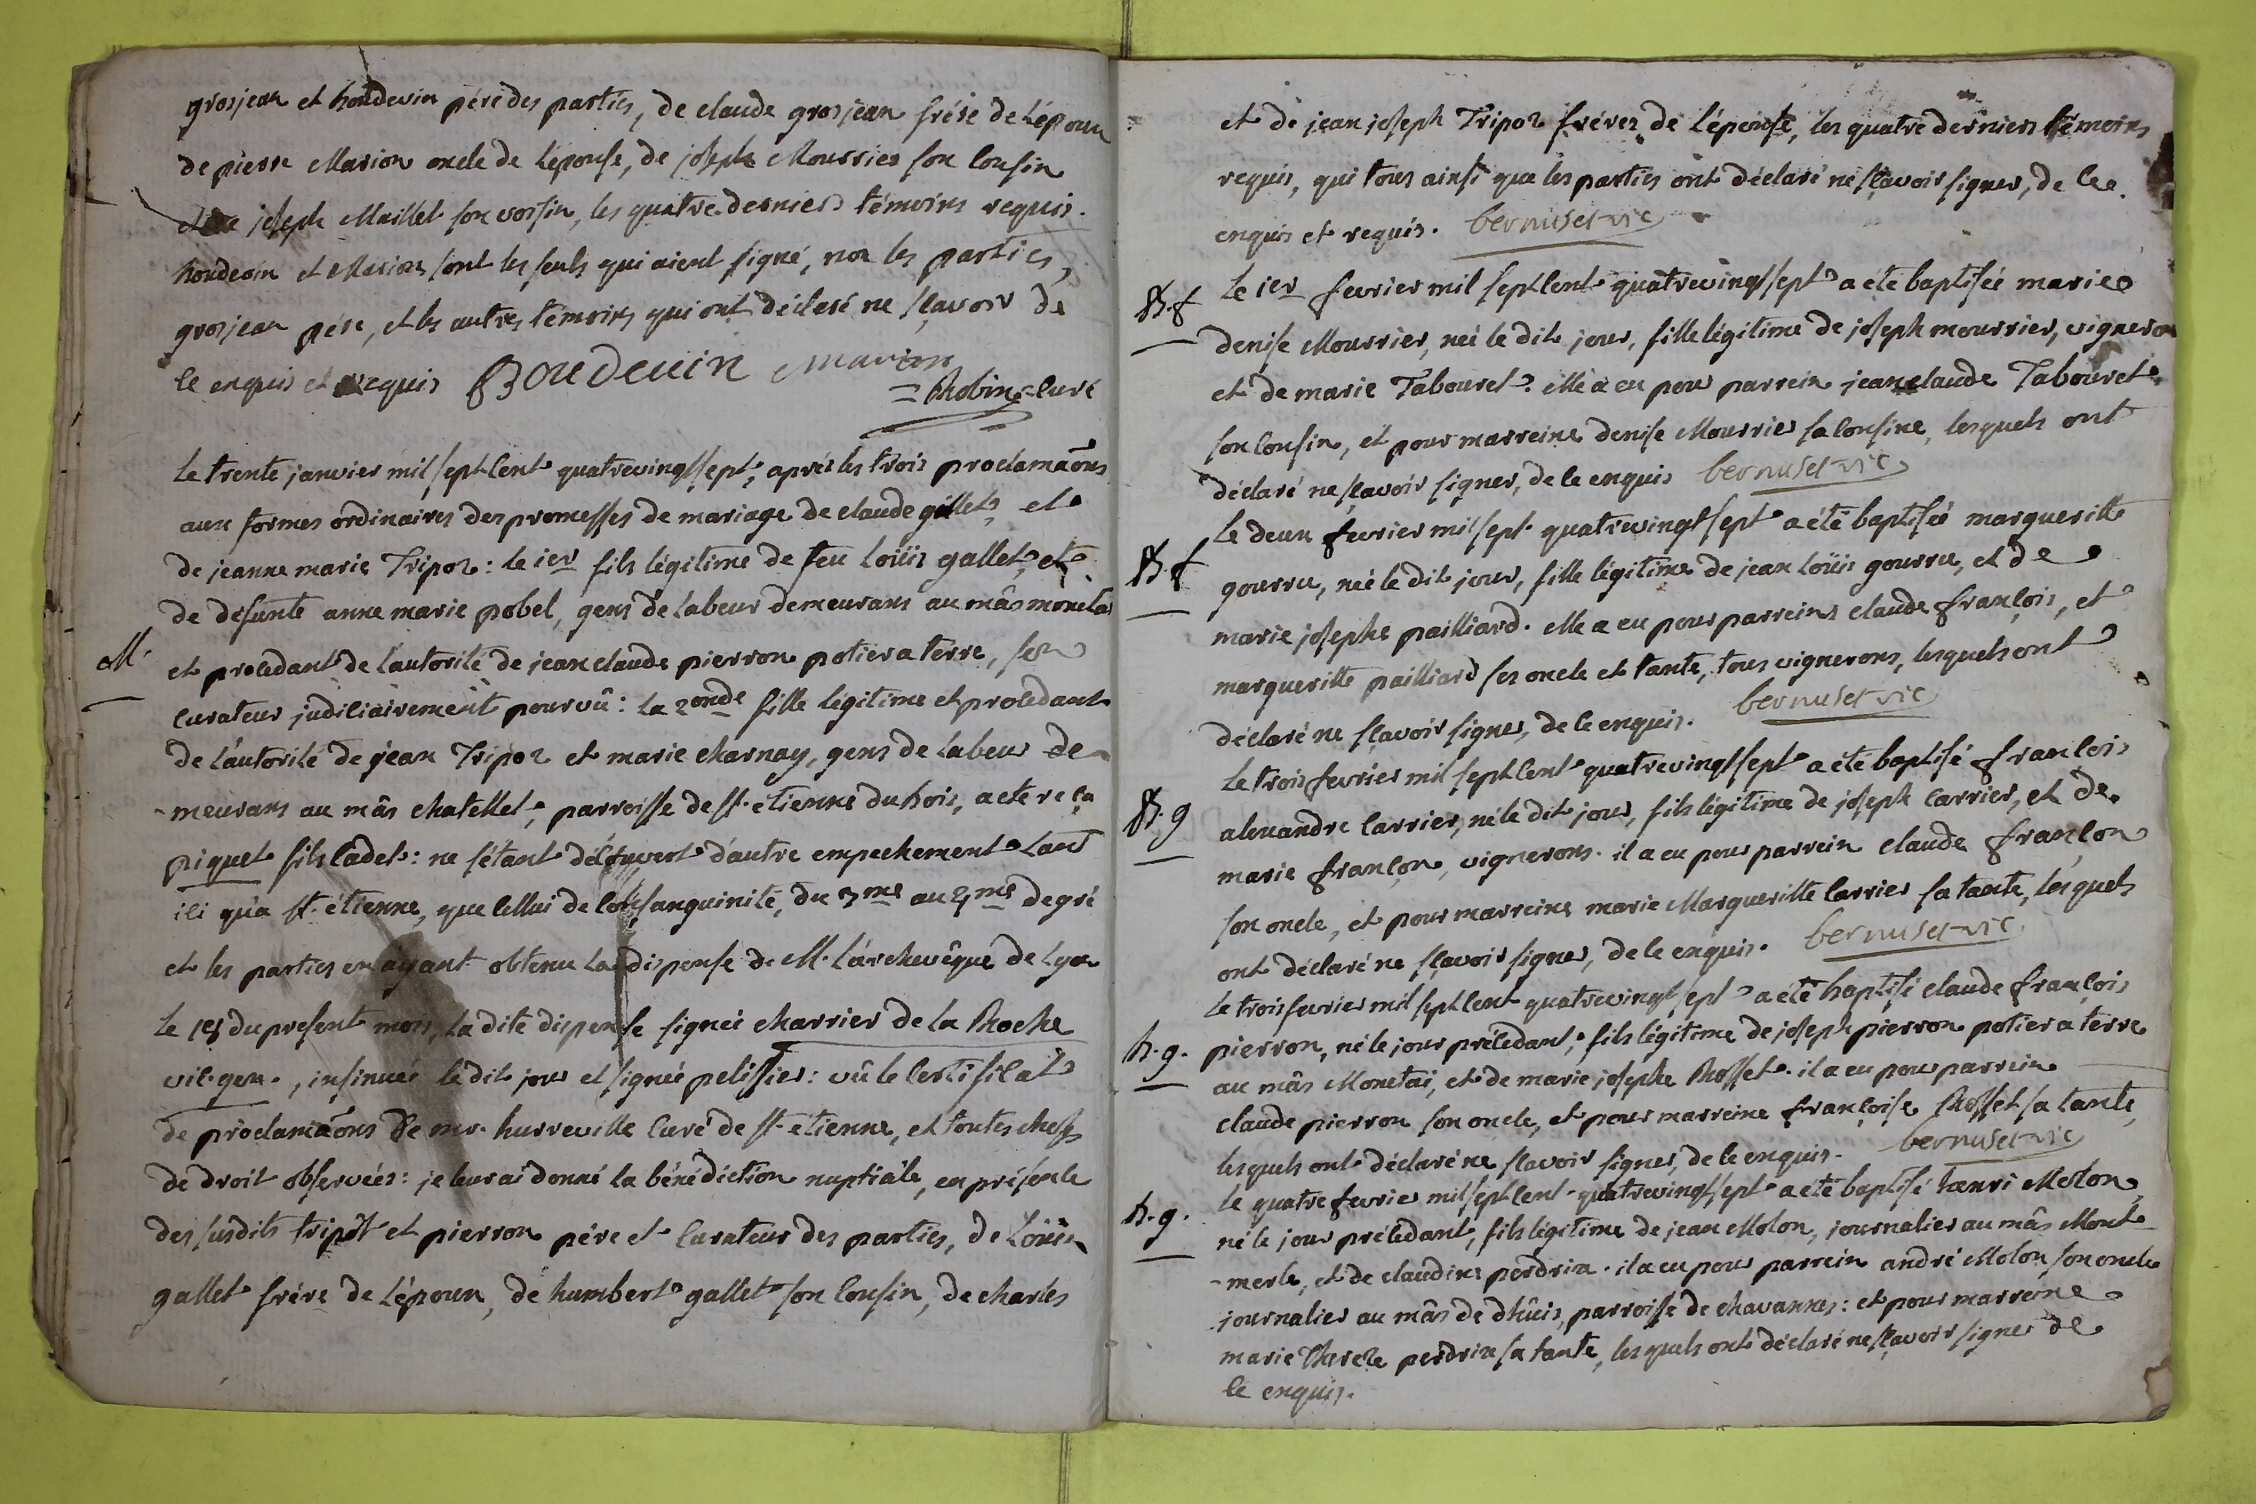 grosjean et boudevin pére des parties, de claude grosjean frére de l'époux
de pierre Marion oncle de l'épouse, de joseph Mourrier son cousin
et de joseph Maillet son voisin, les quatre derniers témoins requis.
boudevin et Marion sont les seuls qui aient signé, non les parties,
grosjean pére, et les autres témoins qui ont déclaré ne sçavoir de
ce enquis et requis Boudevin marion
= Robin = curé
Le trente janvier mil sept cent quatrevingt sept, aprés les trois proclamaõns
aux formes ordinaires des promesses de mariage de claude gallet, et
de jeanne marie Tripoz : le 1er fils légitime de feu Loüis gallet, et
de defunte anne marie pobel, gens de labeur demeurans au mâs monetai
M. et procedant de l'autorité de jean claude pierron potier a terre, son
curateur judiciairement pourvû : la 2onde fille légitime et procedant
de l'autorité de jean Tripoz et marie charnay, gens de labeur de-
-meurans au mâs chatellet, parroisse de st. étienne du bois, a été reçu
piquet fils cadet : ne s'étant découvert d'autre empechement tant
ici qu'a st. étienne, que celui de consanguinité, du 3me au 4me degré
et les parties en ayant obtenu la dispense de M. L'archevêque de Lyon
le 18 du present mois, la dite dispense signée charrier de la Roche
vic. gen., insinuée le dit jour et signée pelissier : vû le certificat
de proclamaõns de mr. hurreville curé de st. étienne, et toutes choses
de droit observées : je leur ai donné la bénédiction nuptiale, en présence
des susdits tripot et pierron pére et curateur des parties, de Loüis
gallet frére de l'époux, de humbert gallet son cousin, de charles
et de jean joseph Tripoz fréres de l'épouse, les quatre derniers témoins
requis, qui tous ainsi que les parties ont déclaré ne sçavoir signer, de ce
enquis et requis. bernuset vic
B. f Le 1er fevrier mil sept cent quatrevingt sept a été baptisée marie
denise Mourrier, née le dit jour, fille légitime de joseph mourrier, vigneron
et de marie Tabouret. elle a eu pour parrein jean claude Tabouret
son cousin, et pour marreine denise Mourrier sa cousine, lesquels ont
déclaré ne sçavoir signer, de ce enquis bernuset vic
B. f Le deux fevrier mil sept quatrevingt sept a été baptisée margueritte
gourru, née le dit jour, fille légitime de jean Loüis gourru, et de
marie josephe pailliard. elle a eu pour parreins claude françois, et
marguerite pailliard ses oncle et tante, tous vignerons, lesquels ont
déclaré ne sçavoir signer, de ce enquis. bernuset vic
B. g Le trois fevrier mil sept cent quatrevingt sept a été baptisé françois
alexandre carrier, né le dit jour, fils légitime de joseph carrier, et de
marie françon, vignerons. il a eu pour parrein claude françon
son oncle, et pour marreine marie Marguerite carrier sa tante, lesquels
ont déclaré ne sçavoir signer, de ce enquis. bernuset vic
b. g. Le trois fevrier mil sept cent quatrevingt sept a été baptisé claude françois
pierron, né le jour précédant, fils légitime de joseph pierron potier a terre
au mâs Monetai, et de marie josephe Rosset. il a eu pour parrein
claude pierron son oncle, et pour marreine françoise Rosset sa tante,
lesquels ont déclaré ne sçavoir signer, de ce enquis. bernuset vic
b. g. Le quatre fevrier mil sept cent quatrevingt sept a été baptisé henri Molon,
né le jour précédant, fils légitime de jean Molon, journalier au mâs Mont
-merle, et de claudine perdrix. il a eu pour parrein andré Molon son oncle
journalier au mâs de dhûis, parroisse de chavannes : et pour marreine
marie thereze perdrix sa tante, lesquels ont déclaré ne sçavoir signer de
ce enquis.